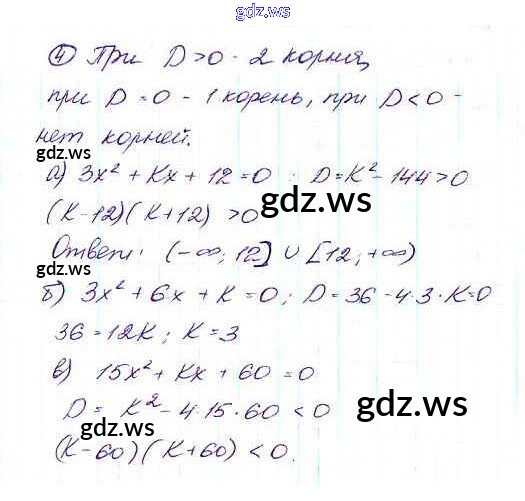 gdz.ws
④ При D>0 - 2 корня,
при D = 0 - 1 корень, при D<0 -
нет корней.
gdz.ws
а) 3x² + Kx + 12 = 0 : D = K² - 144 > 0
gdz.ws
(K-12)(K+12) > 0
Ответ: (-∞; 12] ∪ [12; +∞)
gdz.ws
б) 3x² + 6x + K = 0; D = 36 - 4·3·K=0
36 = 12K; K = 3
в) 15x² + Kx + 60 = 0
D = K² - 4·15·60 < 0
gdz.ws
gdz.ws
(K-60)(K+60) < 0.